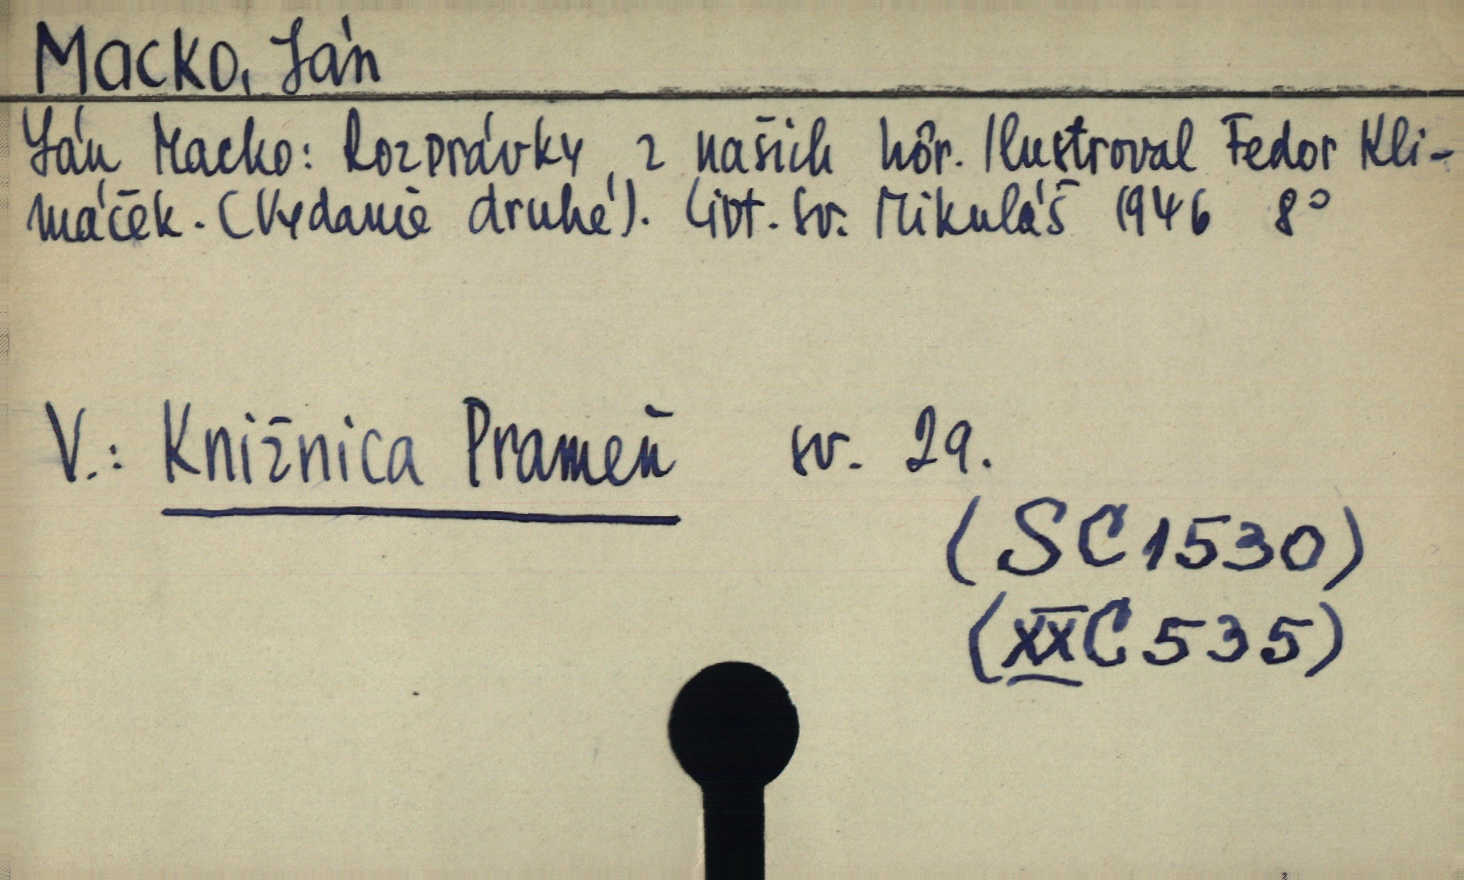 Macko, Ján
Ján Macko: Rozprávky z našich hôr. Ilustroval Fedor Kli-
máček. (Vydanie druhé). Lipt. Sv. Mikuláš 1946 8°
V.: Knižnica Prameň sv. 29.
(SC1530)
(XXC535)